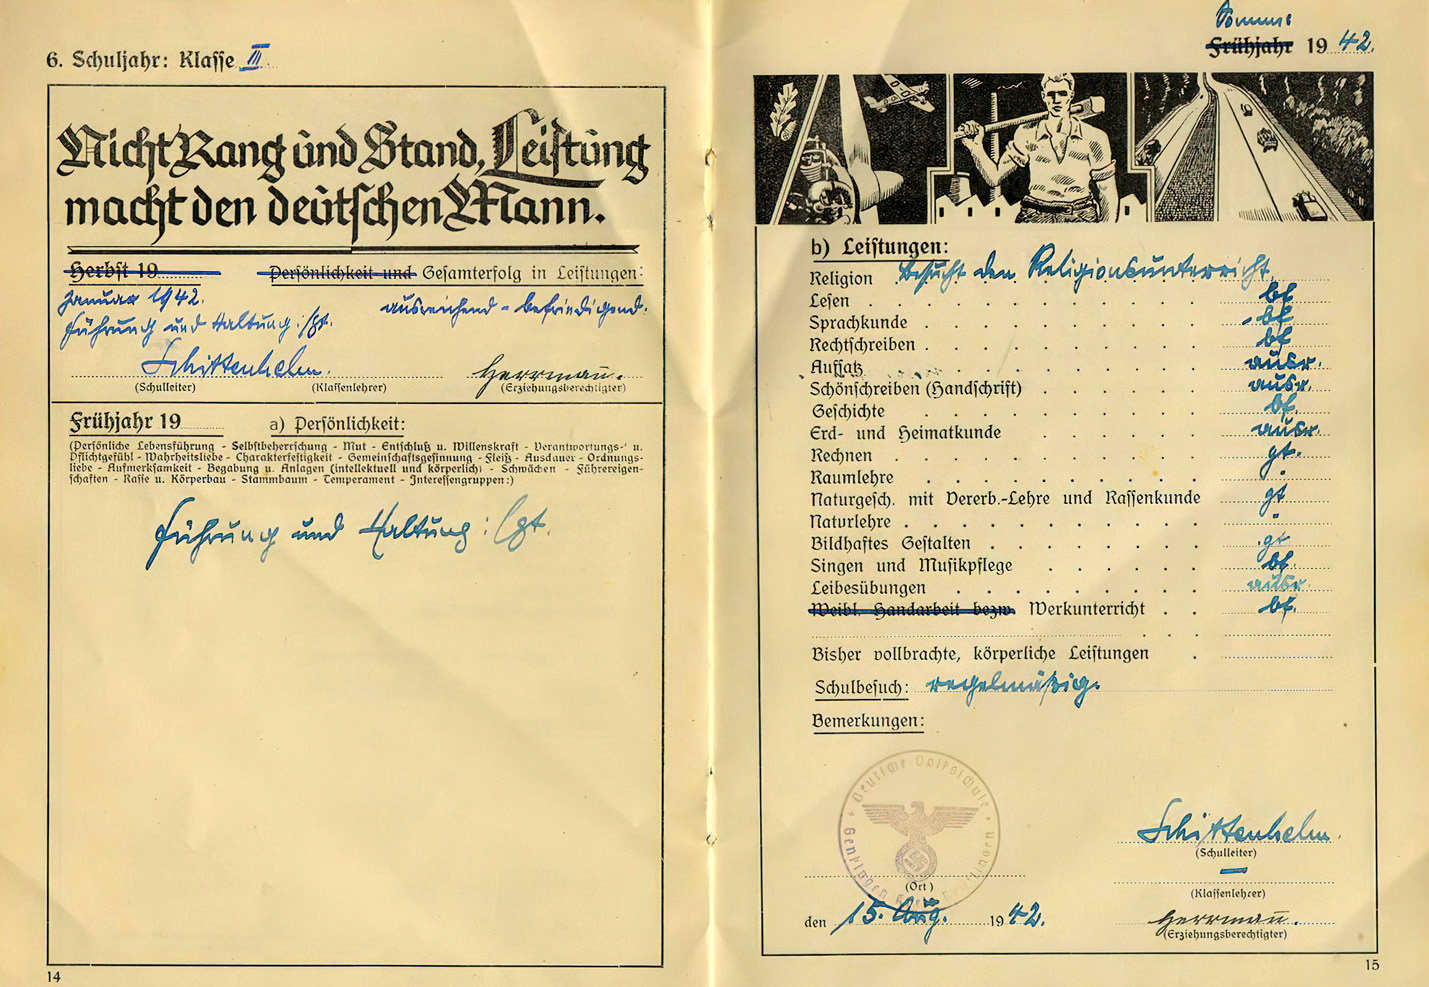 6. Schuljahr: Klasse III.
Nicht Rang und Stand, Leistung
macht den deutschen Mann.
Herbst 19
Persönlichkeit und Gesamterfolg in Leistungen:
Januar 1942.
ausreichend - befriedigend.
Führung und Haltung: gt.
Schittenhelm.
Herrmann.
(Schulleiter) (Klassenlehrer) (Erziehungsberechtigter)
Frühjahr 19 a) Persönlichkeit:
(Persönliche Lebensführung - Selbstbeherrschung - Mut - Entschluß u. Willenskraft - Verantwortungs- u.
Pflichtgefühl - Wahrheitsliebe - Charakterfestigkeit - Gemeinschaftsgesinnung - Fleiß - Ausdauer - Ordnungs-
liebe - Aufmerksamkeit - Begabung u. Anlagen (intellektuell und körperlich) - Schwächen - Führereigen-
schaften - Rasse u. Körperbau - Stammbaum - Temperament - Interessengruppen:)
Führung und Haltung: gt.
14
Sommer
Frühjahr 1942.
b) Leistungen:
Religion besucht den Religionsunterricht.
Lesen bf
Sprachkunde bf
Rechtschreiben bf
Aufsatz ausr.
Schönschreiben (Handschrift) ausr.
Geschichte bf
Erd- und Heimatkunde ausr.
Rechnen gt.
Raumlehre
Naturgesch. mit Vererb.-Lehre und Rassenkunde gt
Naturlehre
Bildhaftes Gestalten gt
Singen und Musikpflege bf.
Leibesübungen ausr.
Weibl. Handarbeit bezw. Werkunterricht bf.
Bisher vollbrachte, körperliche Leistungen
Schulbesuch: regelmäßig.
Bemerkungen:
Deutsche Volksschule
Schittenhelm.
(Schulleiter)
(Ort)
(Klassenlehrer)
den 15. Aug. 1942.
Herrmann.
(Erziehungsberechtigter)
15